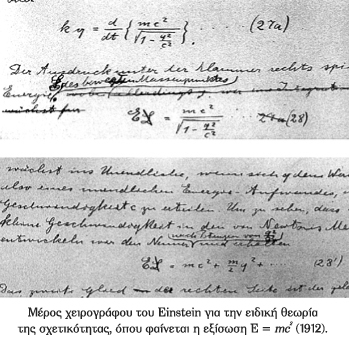 k y = d/dt { mc² / √(1 - q²/c²) } . (27a)
Der Ausdruck unter der Klammer rechts spi
E des bewegten Massenpunktes
Energie
E L = mc² / √(1 - q²/c²) (28)
wächst ins Unendliche, wenn sich q dem Wer
also eines unendlichen Energie-Aufwandes,
Geschwindigkeit c zu erteilen. Um zu sehen, dass
kleine Geschwindigkeit in den von Newtons Me
entwickeln wir den Nenner nach Potenzen von q²/c² und erhalten
E L = mc² + m/2 q² + (28')
Das zweite Glied der rechten Seite ist der
Μέρος χειρογράφου του Einstein για την ειδική θεωρία
της σχετικότητας, όπου φαίνεται η εξίσωση E = mc² (1912).